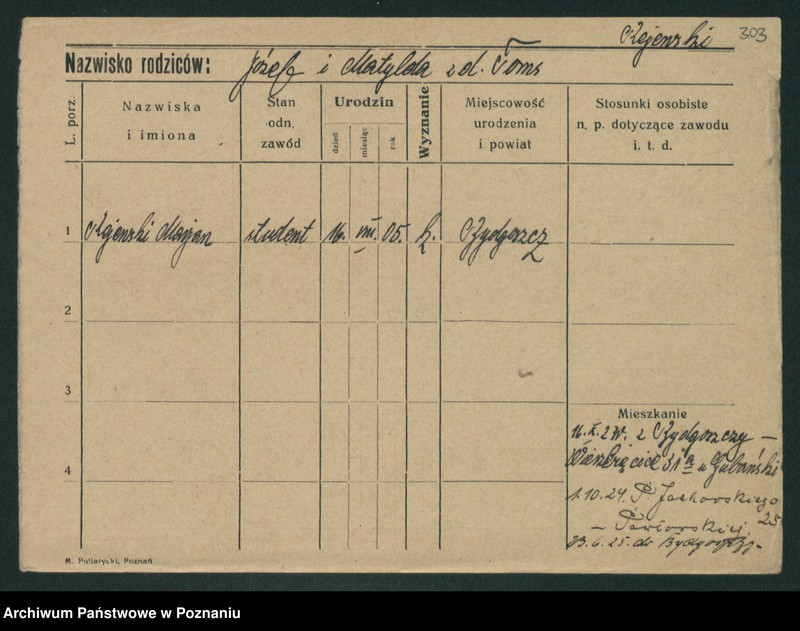 Rejenski 303
Nazwisko rodziców: Józef i Matylda z d. Toms
L. porz.
Nazwiska
i imiona
Stan
odn.
zawód
Urodzin
dzień
miesiąc
rok
Wyznanie
Miejscowość
urodzenia
i powiat
Stosunki osobiste
n. p. dotyczące zawodu
i. t. d.
1 Rejenski Marjan student 16. VIII. 05. k. Bydgoszcz
2
3
Mieszkanie
16.X.24. z Bydgoszczy —
4
31a u
1.10.24. P. Jackowskiego
25
—
23.6.25. do Bydgoszczy.
M. Putiatycki, Poznań
Archiwum Państwowe w Poznaniu